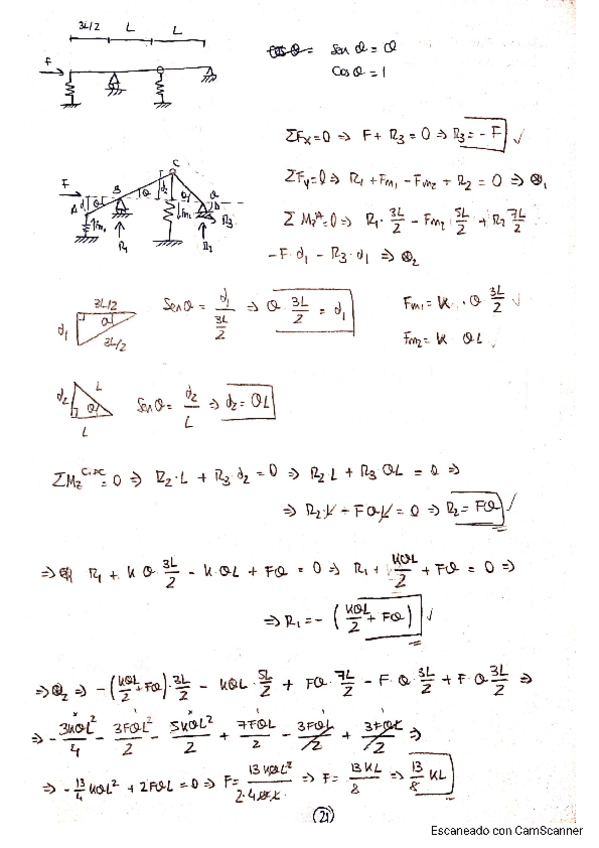 3L/2 L L
F
cos θ = sen θ = θ
cos θ = 1
ΣFx=0 ⇒ F + R3 = 0 ⇒ R3 = - F ✓
ΣFy=0 ⇒ R1 + Fm1 - Fm2 + R2 = 0 ⇒ ⊗1
Σ Mz^A=0 ⇒ R1 · 3L/2 - Fm2 5L/2 + R2 7L/2
- F · d1 - R3 · d1 ⇒ ⊗2
F A B C d1 θ θ d2 θ Fm1 Fm2 R1 R2 R3
3L/2 d1 θ 3L/2
Sen θ = d1 / 3L/2 ⇒ θ · 3L/2 = d1
Fm1 = K · θ 3L/2 ✓
Fm2 = K θL ✓
d2 L θ L
Sen θ = d2/L ⇒ d2 = θL
ΣMz = 0 ⇒ R2 · L + R3 · d2 = 0 ⇒ R2 · L + R3 θL = 0 ⇒
⇒ R2 · L - F θ L = 0 ⇒ R2 = Fθ ✓
⇒ R1 + K θ · 3L/2 - K · θL + Fθ = 0 ⇒ R1 + KθL/2 + Fθ = 0 ⇒
⇒ R1 = - (KθL/2 + Fθ) ✓
⇒ ⊗2 ⇒ - (KθL/2 + Fθ) · 3L/2 - KθL · 5L/2 + Fθ · 7L/2 - F · θ · 3L/2 + F · θ 3L/2 ⇒
⇒ - 3KθL²/4 - 3FθL/2 - 5KθL²/2 + 7FθL/2 - 3FθL/2 + 3FθL/2 ⇒
⇒ - 13/4 KθL² + 2FθL = 0 ⇒ F = 13KθL² / 2·4θL ⇒ F = 13KL/8 ⇒ 13/8 KL
(21)
Escaneado con CamScanner